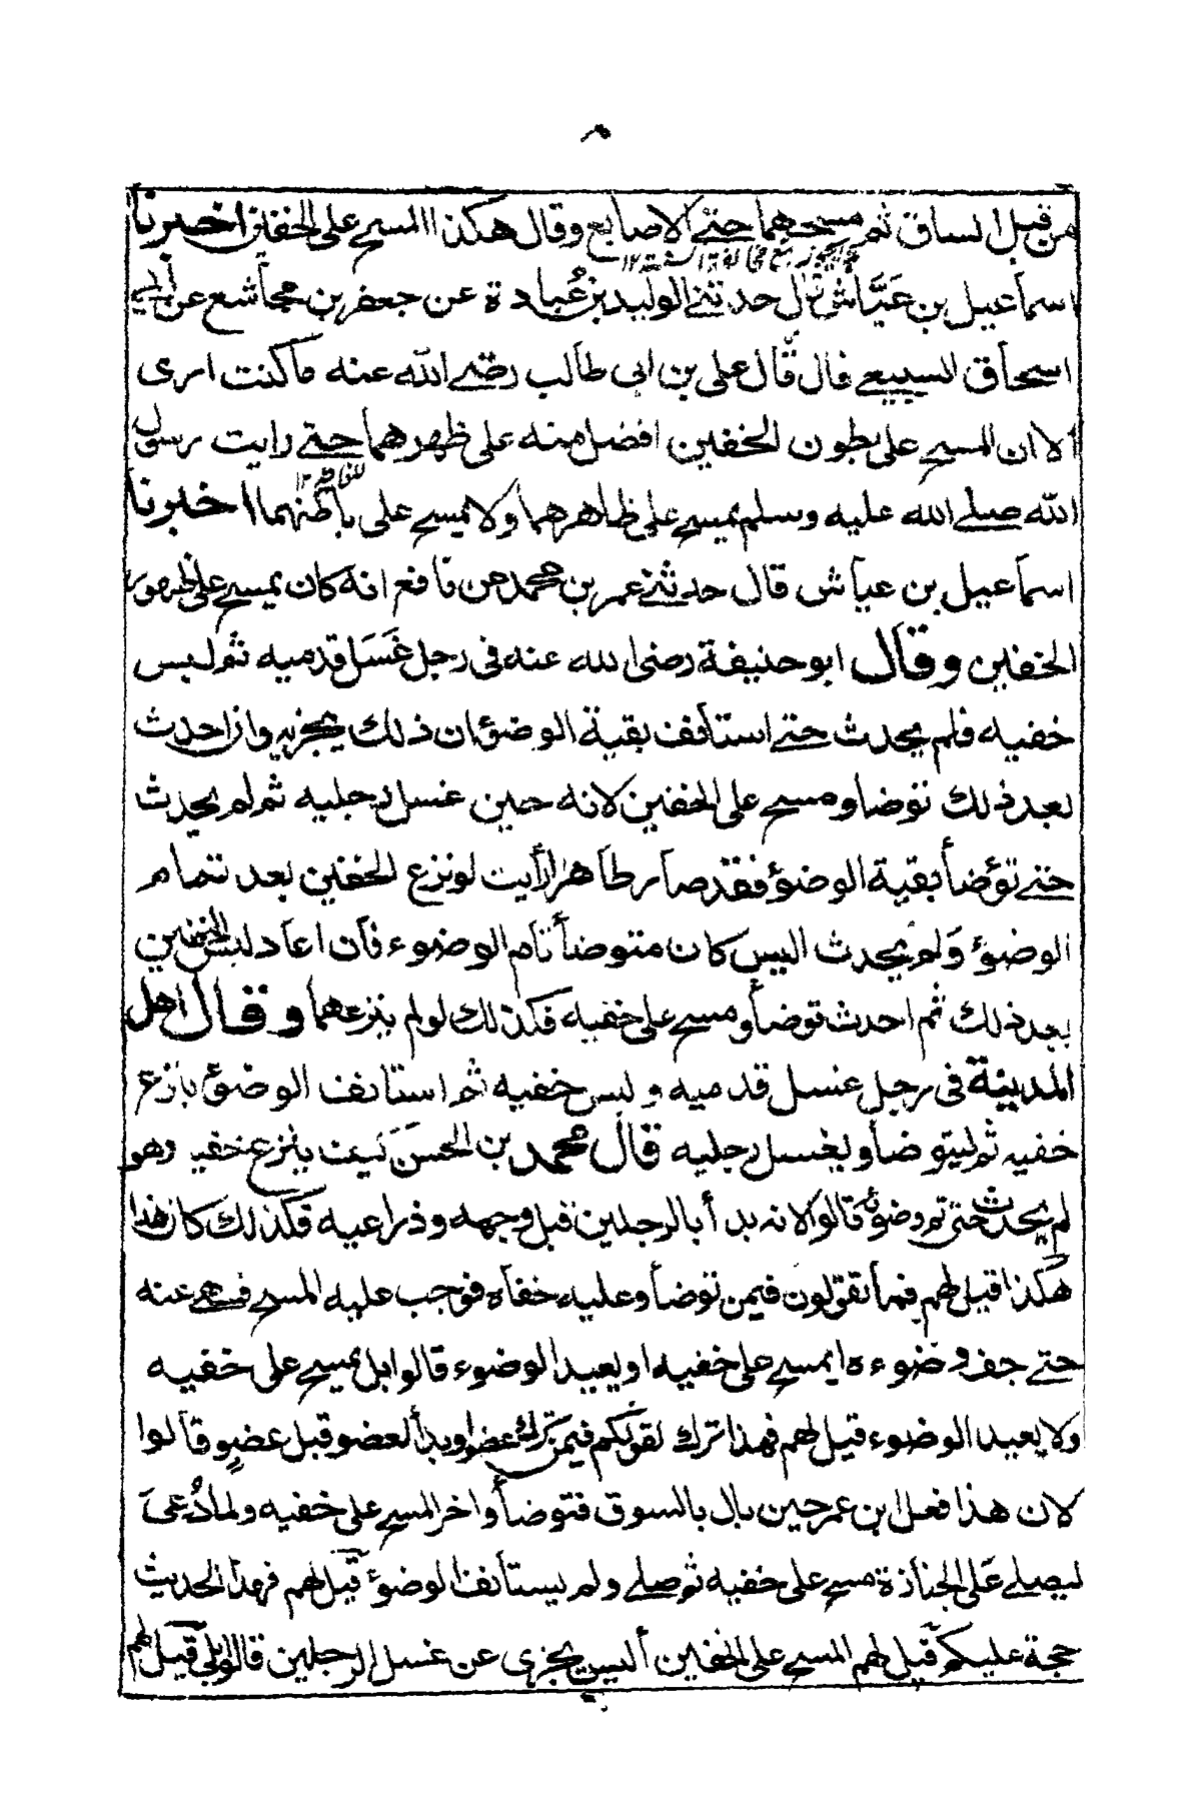 ٨
من قبل الساق ثم مسحهما حتى الاصابع وقال هكذا المسح على الخفين اخبرنا
اسماعيل بن عيّاش قال حدثني الوليد بن عُبادة عن جعفر بن مجاشع عن ابي
اسحاق السبيعي قال قال على بن ابى طالب رضي الله عنه ما كنت ارى
الا ان المسح على بطون الخفين افضل منه على ظهرهما حتى رايت رسول
الله صلے الله عليه وسلم يمسح على ظاهرهما ولا يمسح على باطنهما اخبرنا
اسماعيل بن عياش قال حدثني عمر بن محمد عن نافع انه كان يمسح على ظهور
الخفين وقال ابو حنيفة رضى الله عنه فى رجل غَسَل قدميه ثم لبس
خفيه فلم يحدث حتے استأنف بقية الوضوٴ ان ذلك يجزيه وان احدث
بعد ذلك توضا ومسح على الخفين لانه حين غسل رجليه ثم لم يحدث
حتے توٴضأ بقية الوضوٴ فقد صار طاهرا أرأيت لو نزع الخفين بعد تمام
الوضوٴ وَلم يحدث اليس كان متوضأ تام الوضوء فان اعاد لبس الخفين
بعد ذلك ثم احدث توضأ ومسح على خفيه فكذلك لو لم ينزعهما وقال اهل
المدينة فى رجل غسل قدميه ولبس خفيه ثم استانف الوضوٴ ينزع
خفيه ثم ليتوضأ وليغسل رجليه قال محمد بن الحسن كيف ينزع خفيه وهو
لم يحدث حتى تم وضوئه قالوا لانه بدأ بالرجلين قبل وجهه وذراعيه فكذلك كان هذا
هكذا قيل لهم فما تقولون فيمن توضأ وعليه خفاه فوجب عليه المسح فسهى عنه
حتے جف وضوءه ايمسح على خفيه او يعيد الوضوء قالوا بل يمسح على خفيه
ولا يعيد الوضوء قيل لهم فهذا ترك لقولكم فيمن ترك عضوا وبدأ لعضو قبل عضوٍ قالوا
لان هذا فعل ابن عمر حين بال بالسوق فتوضأ واخر المسح على خفيه ولما دُعىَ
ليصلے على الجنازة مسح على خفيه ثم صلے ولم يستأنف الوضوٴ قيل لهم فهذا الحديث
حجة عليكم قيل لهم المسح على الخفين أليس يجزى عن غسل الرجلين قالوا بلى قيل لهم